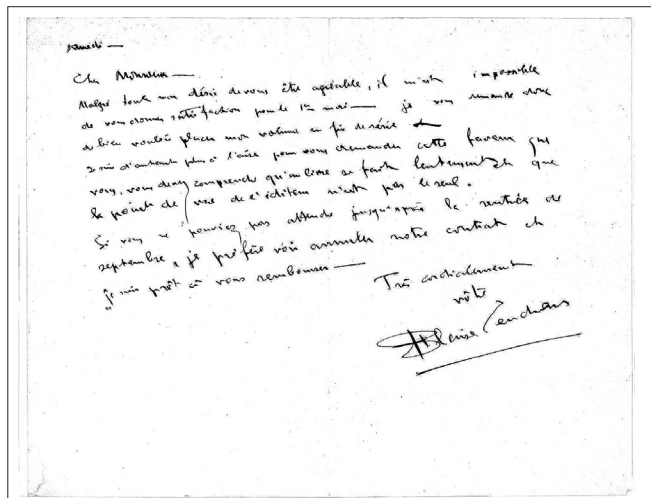 samedi —
Cher Monsieur —
Malgré tout mon désir de vous être agréable, il m'est impossible
de vous donner satisfaction pour le 1er mai — je vous demande donc
de bien vouloir placer mon volume en fin de série —
Je suis d'autant plus à l'aise pour vous demander cette faveur que
vous, vous devez comprendre qu'un livre se fait lentement et que
le point de vue de l'éditeur n'est pas le seul.
Si vous ne pouviez pas attendre jusqu'après la rentrée de
septembre, je préfère voir annuler notre contrat et
je suis prêt à vous rembourser —
Très cordialement
vôtre
Blaise Cendrars